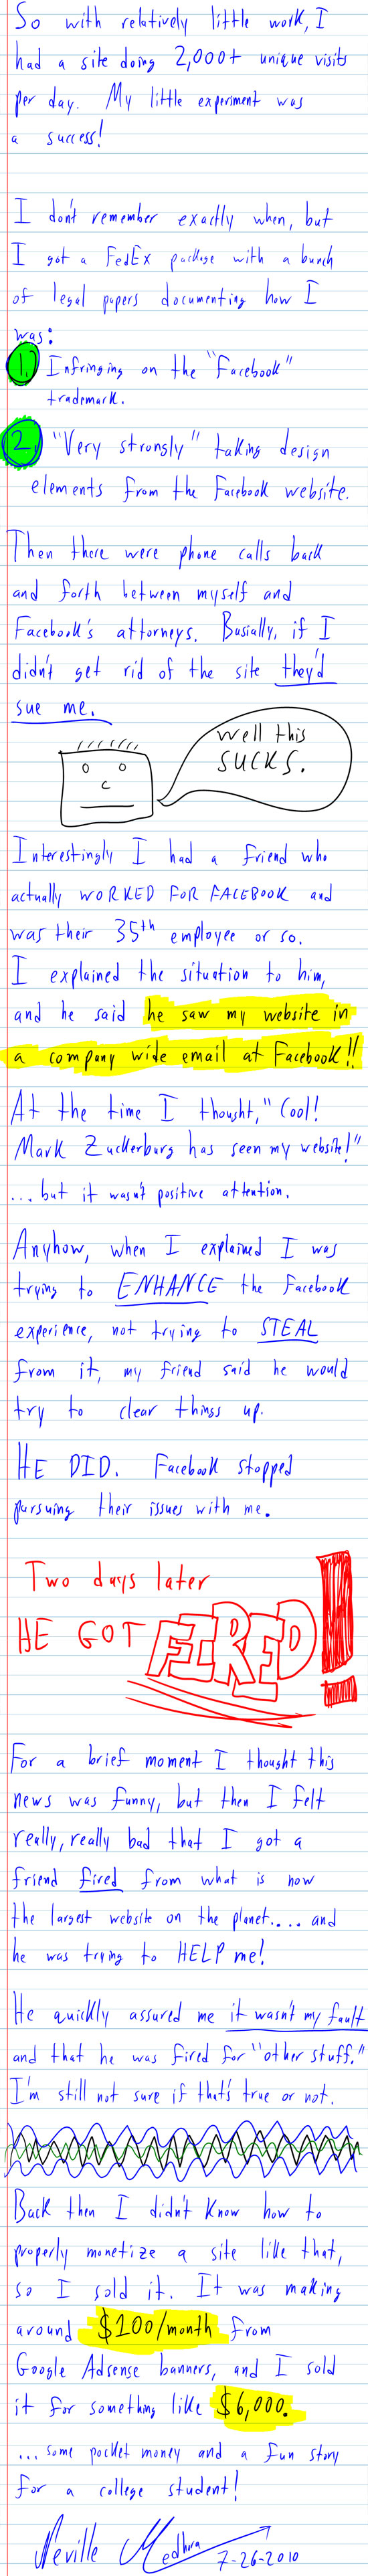 So with relatively little work, I
had a site doing 2,000+ unique visits
per day. My little experiment was
a success!
I don't remember exactly when, but
I got a FedEx package with a bunch
of legal papers documenting how I
was:
1. Infringing on the "Facebook"
trademark.
2. "Very strongly" taking design
elements from the Facebook website.
Then there were phone calls back
and forth between myself and
Facebook's attorneys. Basially, if I
didn't get rid of the site they'd
sue me.
Well this
SUCKS.
Interestingly I had a friend who
actually WORKED FOR FACEBOOK and
was their 35th employee or so.
I explained the situation to him,
and he said he saw my website in
a company wide email at Facebook!!
At the time I thought, "Cool!
Mark Zuckerburg has seen my website!"
...but it wasn't positive attention.
Anyhow, when I explained I was
trying to ENHANCE the Facebook
experience, not trying to STEAL
from it, my friend said he would
try to clear things up.
HE DID. Facebook stopped
pursuing their issues with me.
Two days later
HE GOT FIRED!
For a brief moment I thought this
news was funny, but then I felt
really, really bad that I got a
friend fired from what is now
the largest website on the planet.... and
he was trying to HELP me!
He quickly assured me it wasn't my fault
and that he was fired for "other stuff."
I'm still not sure if that's true or not.
Back then I didn't know how to
properly monetize a site like that,
so I sold it. It was making
around $100/month from
Google Adsense banners, and I sold
it for something like $6,000.
... some pocket money and a fun story
for a college student!
Neville Medhora 7-26-2010